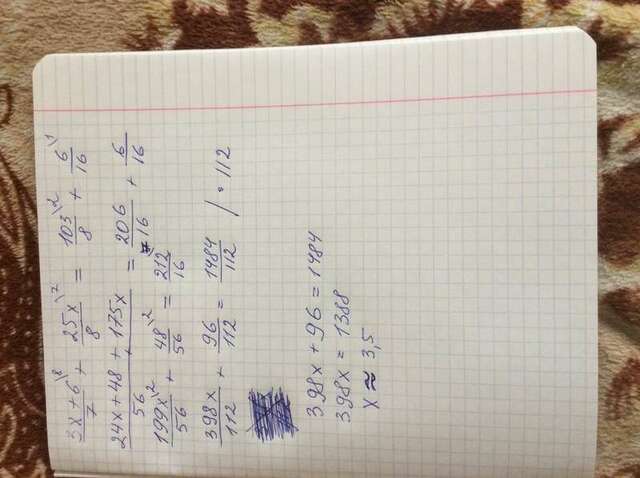 3x+6\8/7 + 25x\2/8 = 103\2/8 + 6\1/16
24x+48+175x/56 = 206/16 + 6/16
199x\2/56 + 48\2/56 = 212/16
398x/112 + 96/112 = 1484/112 / · 112
398x + 96 = 1484
398x = 1388
x ≈ 3,5